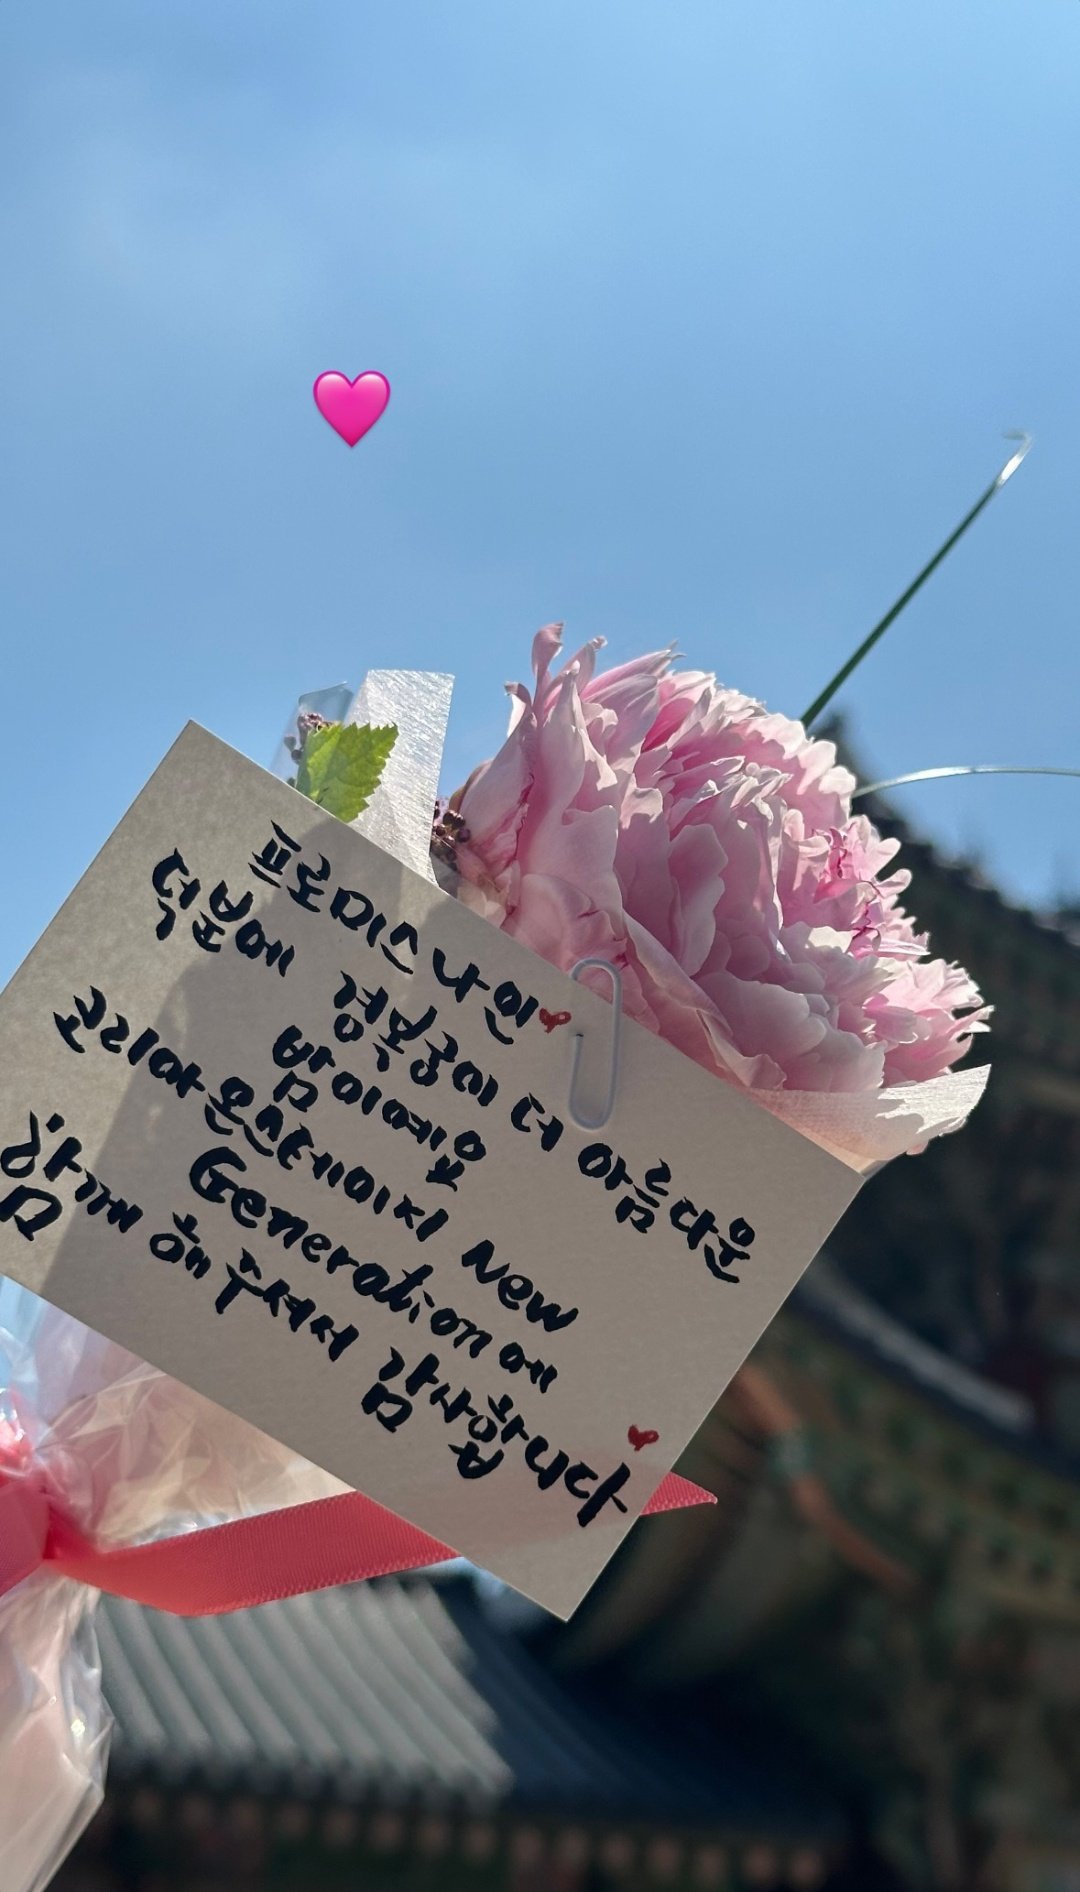 프로미스나인
덕분에 경복궁이 더 아름다운
밤이예요
코리아온스테이지 New
Generation에
함께 해 주셔서 감사합니다